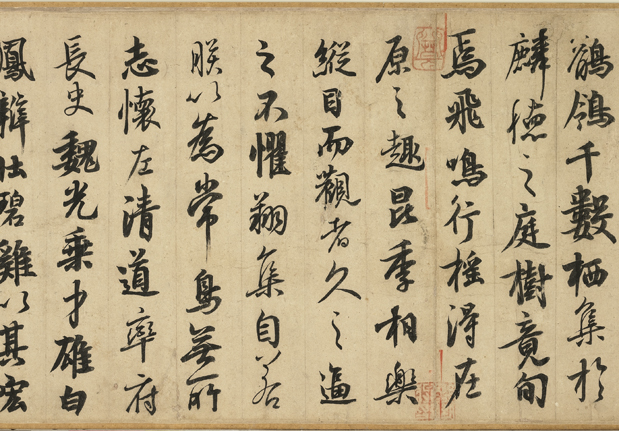 鶺鴒千數栖集於
麟德之庭樹竟旬
焉飛鳴行搖得在
原之趣昆季相樂
縱目而觀者久之逼
之不懼翔集自若
朕以為常鳥無所
志懷左清道率府
長史魏光乘才雄白
鳳辯壯碧雞以其宏